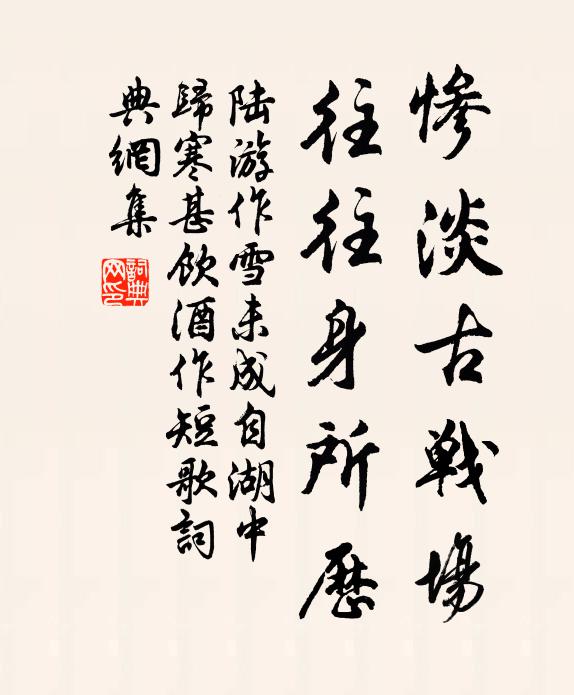 惨淡古戦場
往往身所歷
陆游作雪未成自湖中
歸寒甚飲酒作短歌詞
典網集
詞典网印